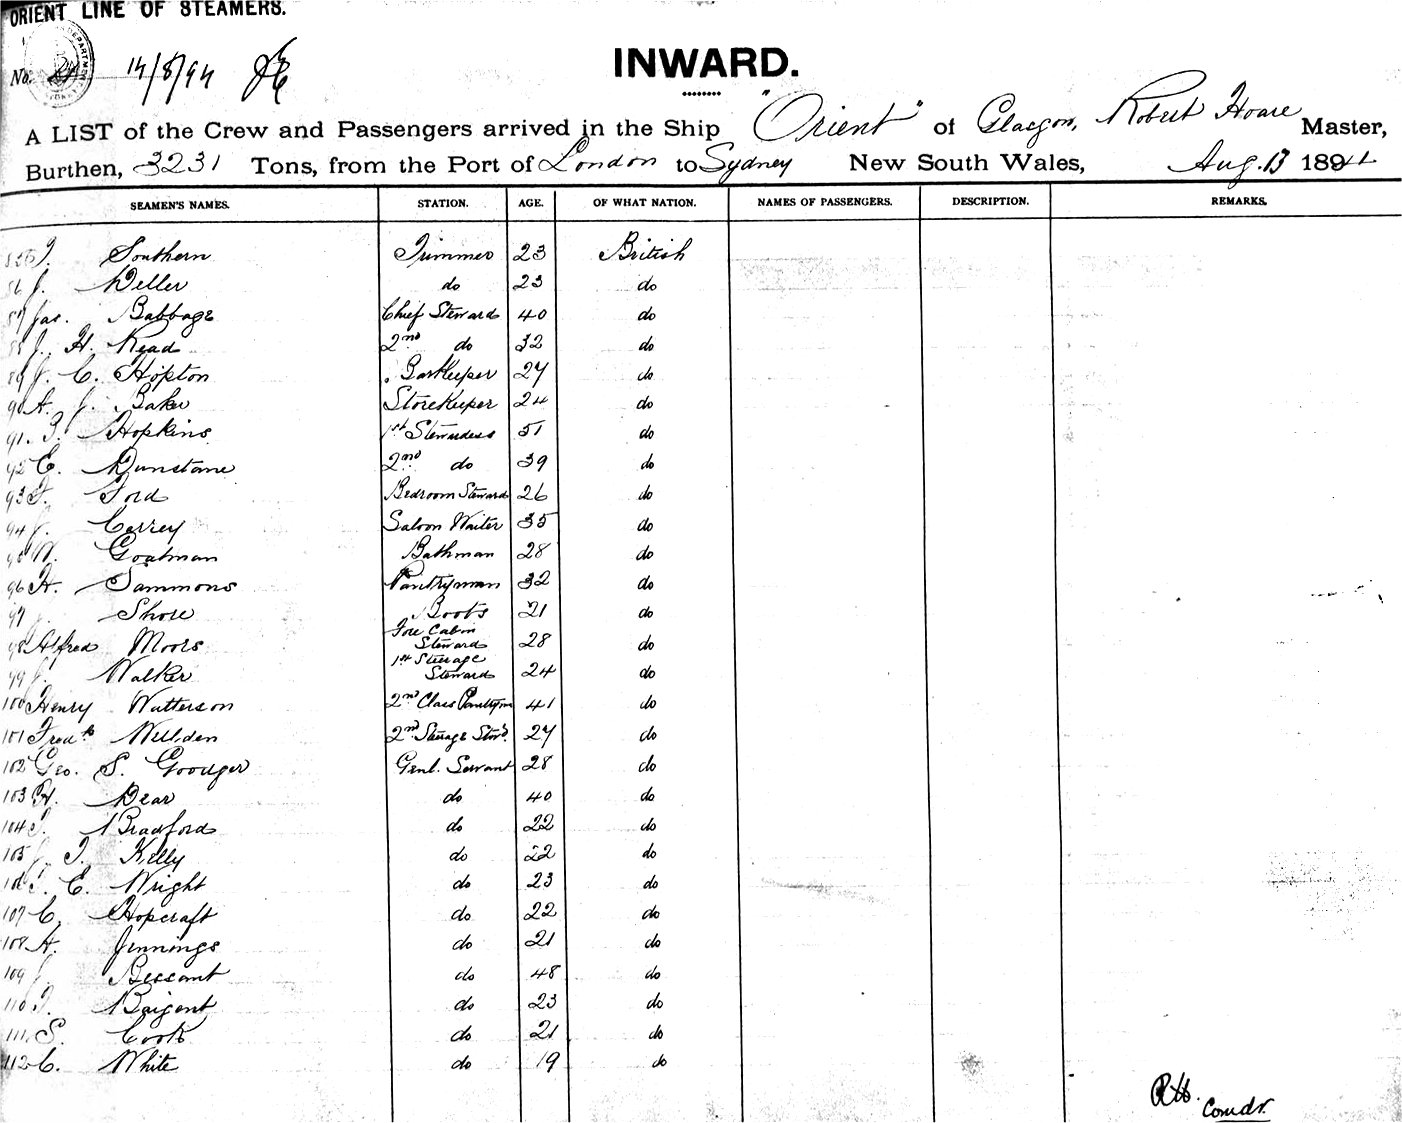 ORIENT LINE OF STEAMERS.
No. 14/8/94
INWARD.
A LIST of the Crew and Passengers arrived in the Ship "Orient" of Glasgow, Robert Hoare Master,
Burthen, 3231 Tons, from the Port of London to Sydney New South Wales, Aug. 13 1894
SEAMEN'S NAMES. STATION. AGE. OF WHAT NATION. NAMES OF PASSENGERS. DESCRIPTION. REMARKS.
Southern Trimmer 23 British
86 J. Weller do 23 do
87 Jas. Babbage Chief Steward 40 do
88 J. H. Read 2nd do 32 do
89 J. C. Hopton Barkeeper 27 do
90 A. J. Baker Storekeeper 24 do
91. Hopkins 1st Stewardess 51 do
92 E. Dunstane 2nd do 39 do
93 F. Ford Bedroom Steward 26 do
94 J. Correy Saloon Waiter 35 do
95 W. Goatman Bathman 28 do
96 H. Sammons Pantryman 32 do
97 J. Shore Boots 21 do
98 Alfred Moors Fore Cabin Steward 28 do
99 J. Walker 1st Steerage Steward 24 do
100 Henry Watterson 2nd Class Pantrym 41 do
101 Fredk 2nd Steerage Stwd. 27 do
102 Geo. S. Goodger Genl. Servant 28 do
103 H. Dear do 40 do
104 T. Bradford do 22 do
105 J. T. Kelly do 22 do
106 E. Wright do 23 do
107 C. Hopcraft do 22 do
108 H. Jennings do 21 do
109 J. Bessant do 48 do
110 T. Baigent do 23 do
111. S. Cook do 21 do
112 C. White do 19 do
RH.
Comdr.